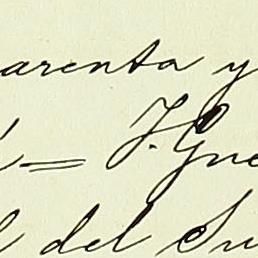 arenta y
= J. Gue
l del Su